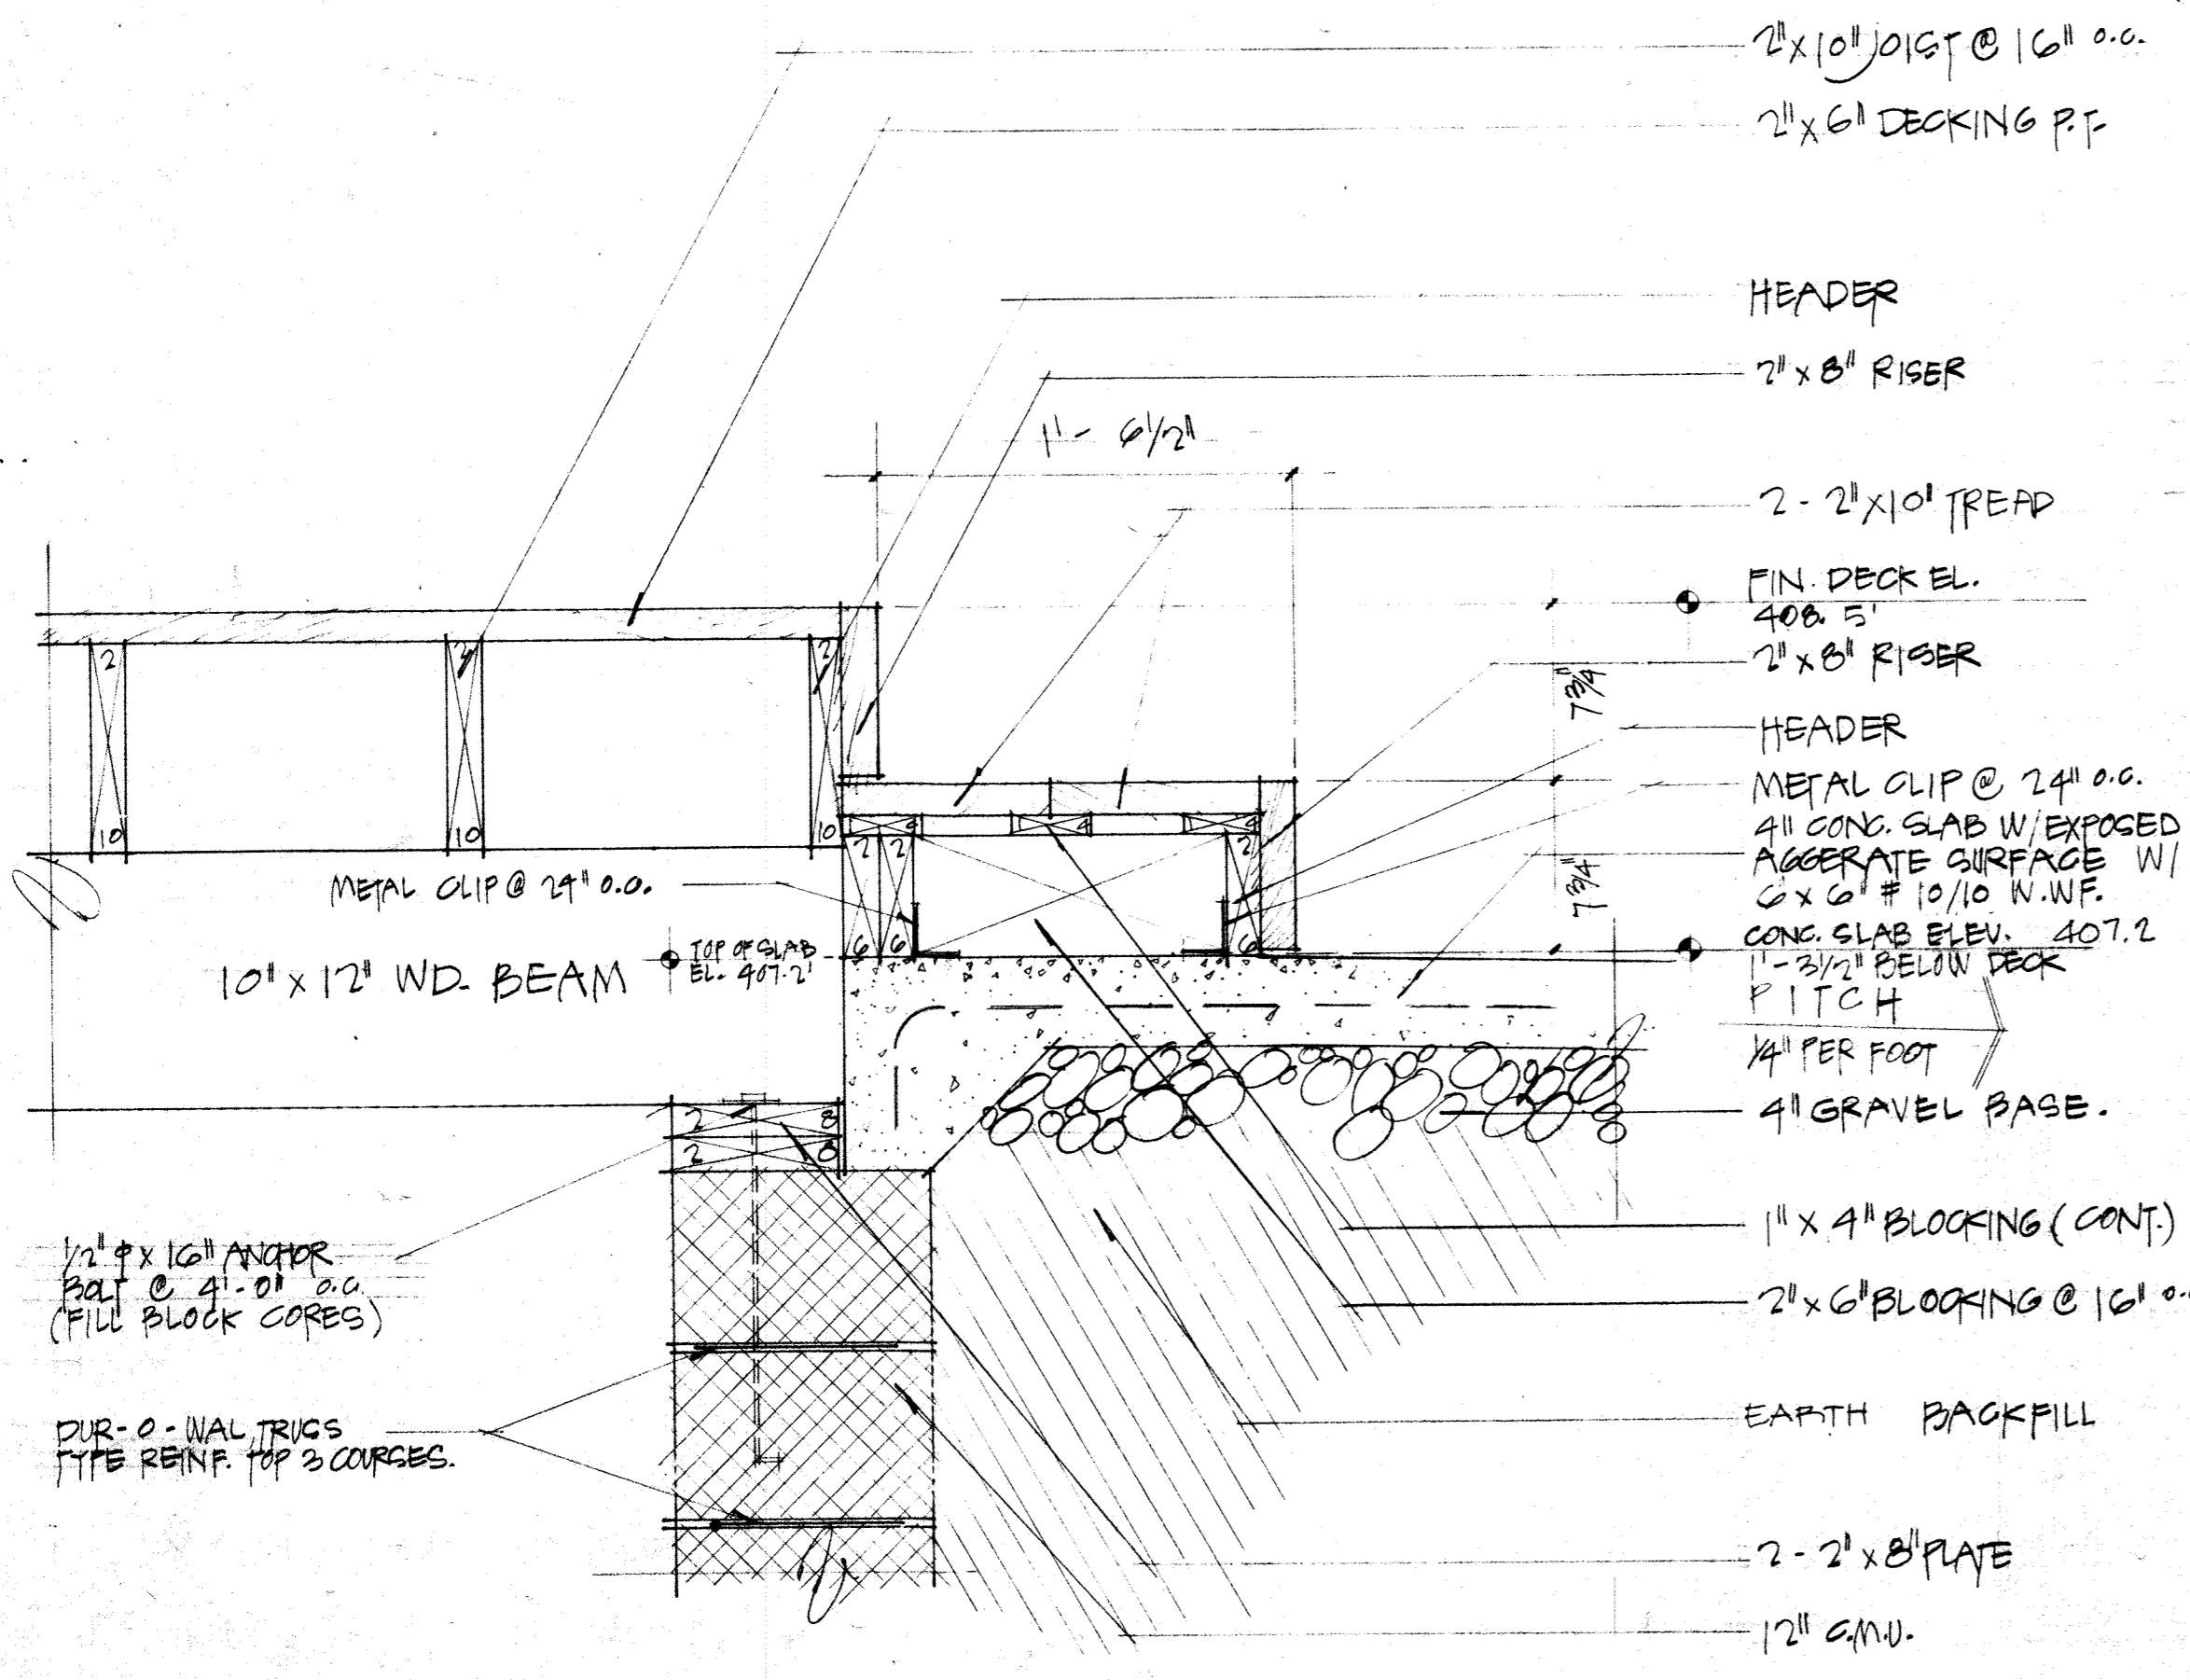 2"x10" JOIST @ 16" O.C.
2"x6" DECKING P.T.
HEADER
2"x8" RISER
1'- 6 1/2"
2 - 2"x10" TREAD
FIN. DECK EL.
408.5'
2"x8" RISER
7 3/4"
HEADER
METAL CLIP @ 24" O.C.
4" CONC. SLAB W/EXPOSED
AGGERATE SURFACE W/
6 x 6" # 10/10 W.WF.
7 3/4"
CONC. SLAB ELEV. 407.2
1'-3 1/2" BELOW DECK
PITCH
1/4" PER FOOT
4" GRAVEL BASE.
1" X 4" BLOCKING (CONT.)
2"x6" BLOCKING @ 16" O.
EARTH BACKFILL
2 - 2"x8" PLATE
12" C.M.U.
2 2 2
10 10 10
4 4 4
2 2 2
6 6 6
METAL CLIP @ 24" O.C.
TOP OF SLAB
EL. 407.2'
10" x 12" WD. BEAM
2 8
2 8
1/2" φ x 16" ANCHOR
BOLT @ 4'-0" O.C.
(FILL BLOCK CORES)
DUR-O-WAL TRUSS
TYPE REINF. TOP 3 COURSES.